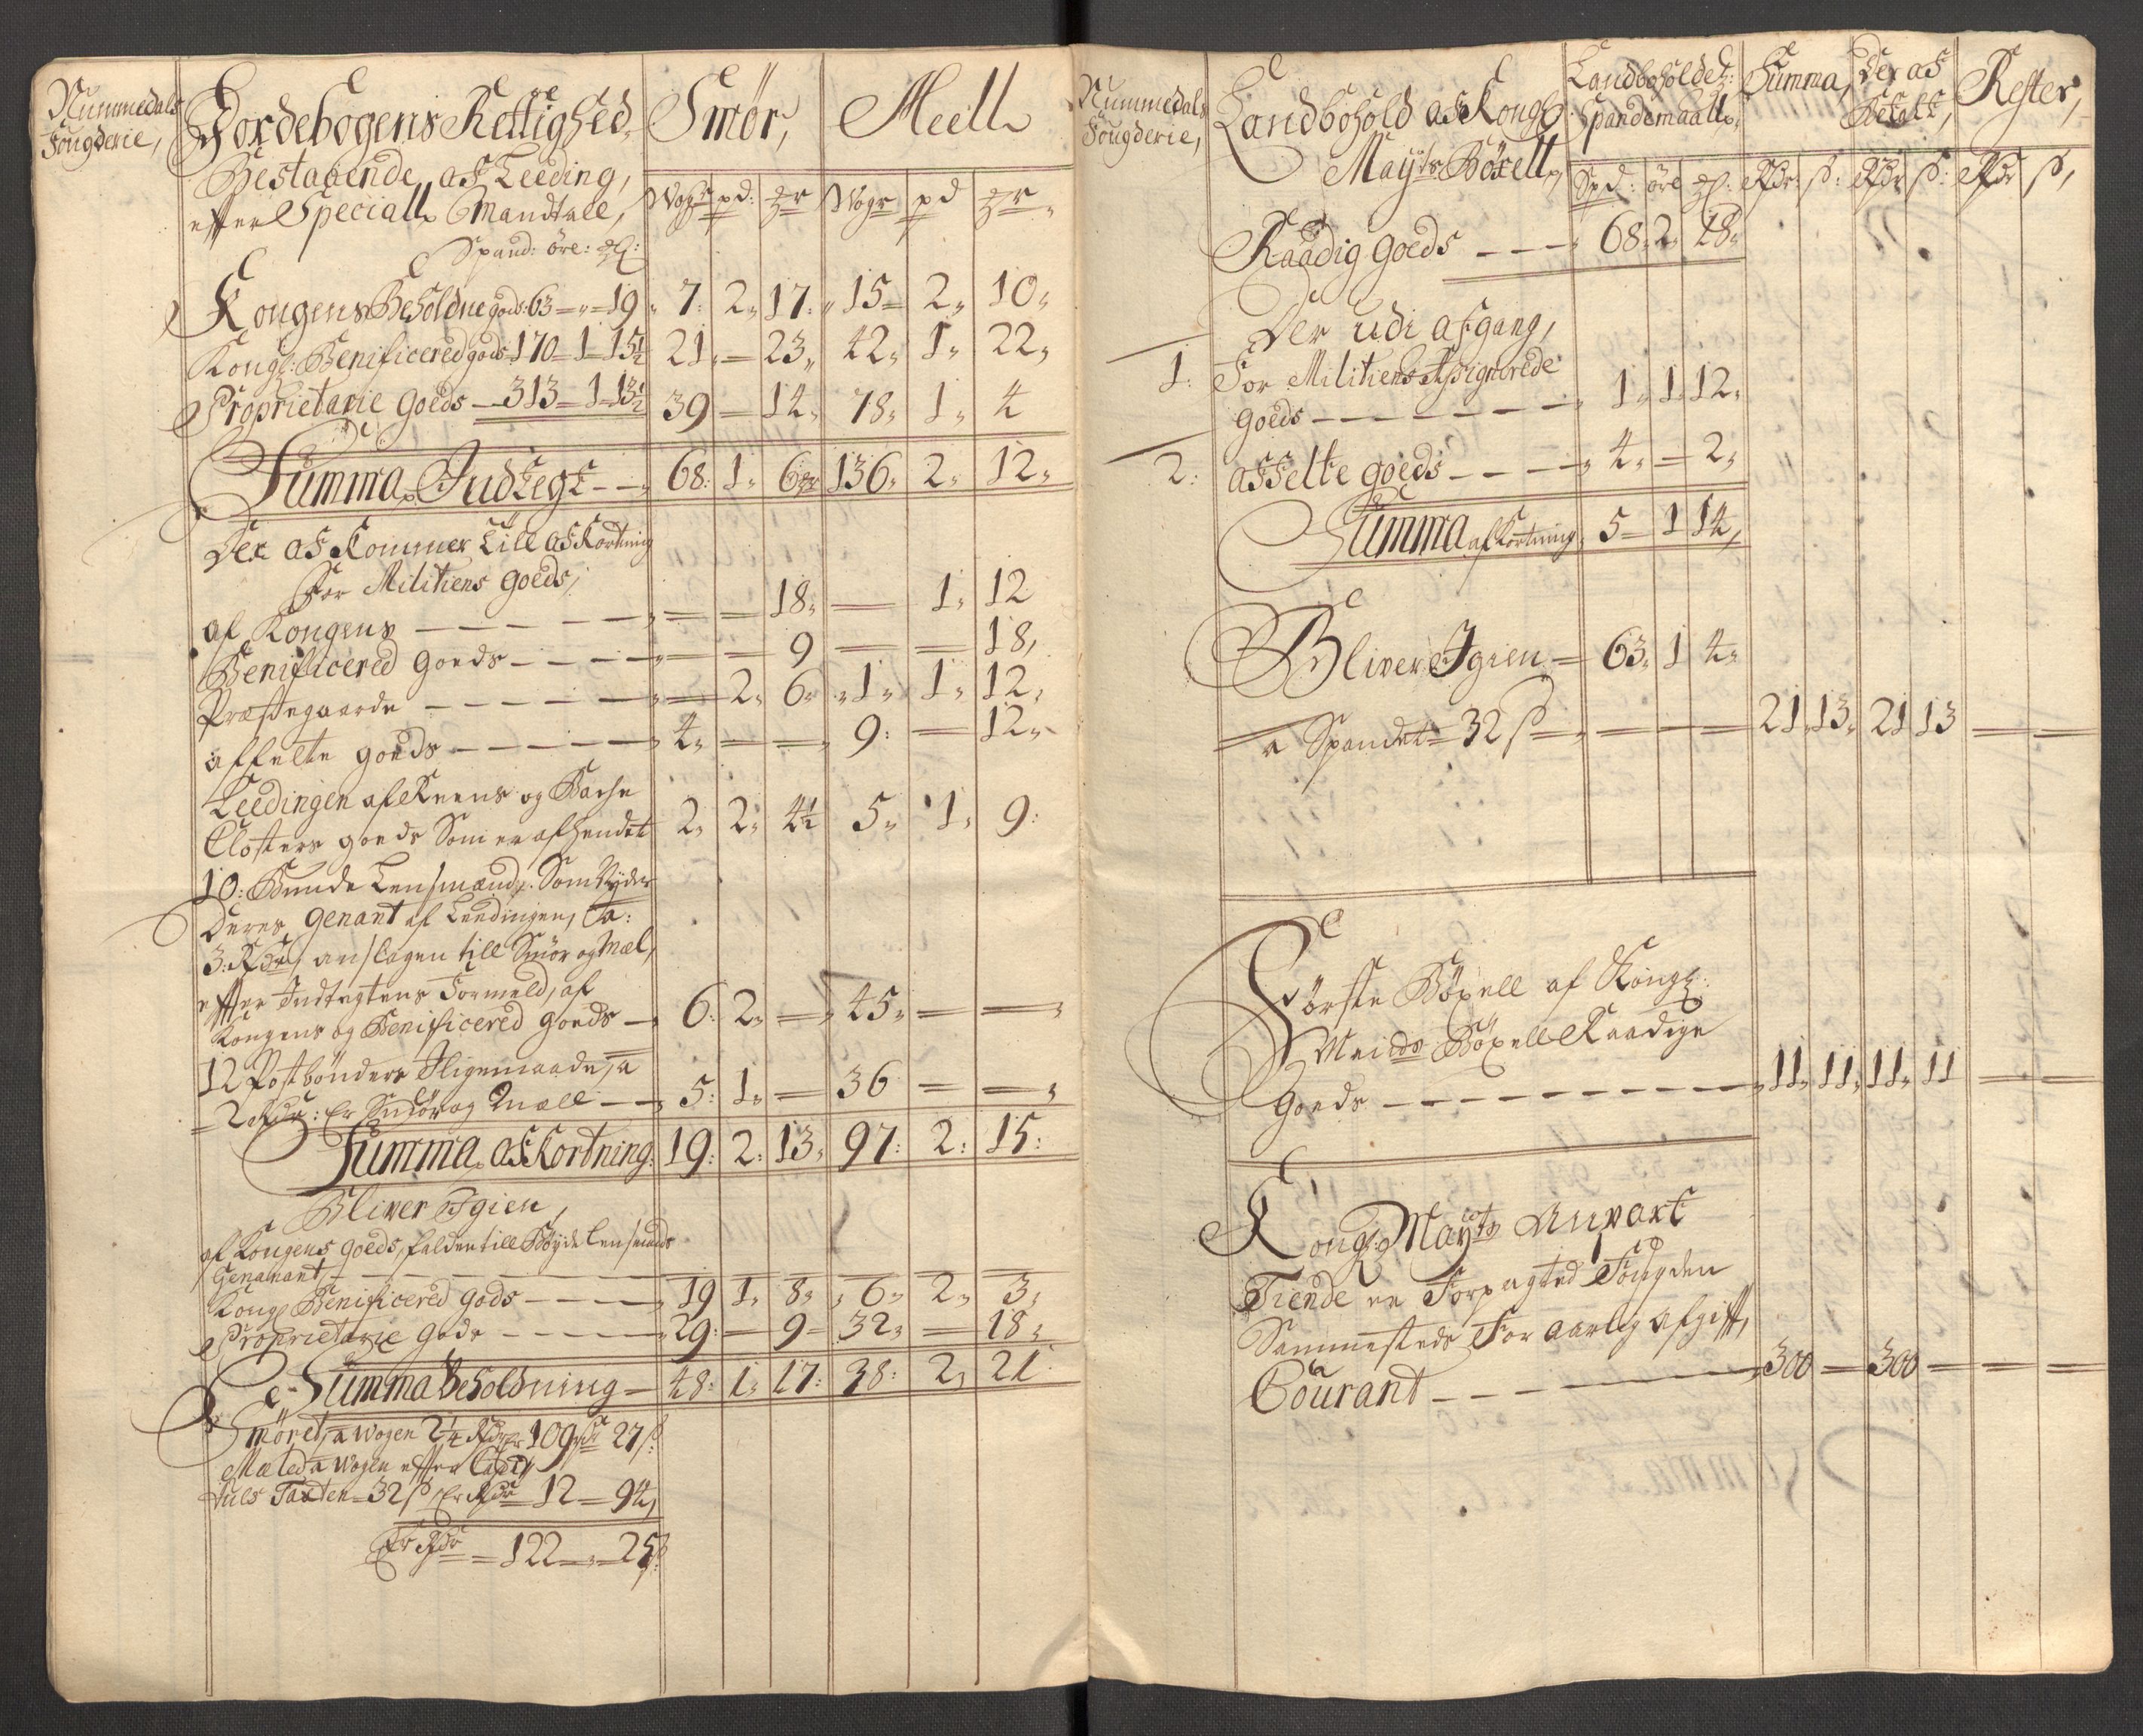 Nummedals
Fougderie,
Jordebogens Rettighed,
Smør,
Meell
Bestaaende af Leeding,
efter Speciall Mandtall,
Wogr pd: Wogr pd
Spand: öre:
Kongens Beholdne gods: 63 = „ = 19 „ 7: 2„ 17: „ 15 = 2„ 10„
Kongl: Benificered gods 170 = 1 = 15½ 21„ = 23„ 42„ 1„ 22„
Proprietarie Goeds — 313 = 1 = 13½ 39 — 14„ 78„ 1„ 4
Summa Indtegt — 68: 1„ 6 136„ 2„ 12„
Der af Kommer till afKortning
For Militiens goeds,
af Kongens — — — — 18„ — 1„ 12
Benificered Goeds — — — 9 — — 18,
Præstegaarde — — — — 2„ 6„ „1„ 1„ 12,
affelte goeds — — — 4„ — — 9: — 12„
Leedingen af Reens og Backe
Closters goeds Som er afhendet 2„ 2„ 4½ 5„ 1„ 9:
10: Bunde Lensmænd, Som Nyder
Deres Genant af Leedingen, a:
3: Rdr, anslagen till Smör og Mæl,
efter Indtegtens Formeld, af
Kongens og Benificered goeds — 6: 2„ = 45„ = =
12 Postbönder Iligemaade, a
2 Rdr: Er Smör og Mæll — 5: 1„ = 36 = =
Summa afKortning: 19: 2: 13„ 97: 2: 15:
Bliver Igien,
af Kongens goeds, falden till Böyde lensmands
Genamant, — — — — —
Kongl Benificered Gods — — 19 1„ 8„ „6„ 2„ 3„
Proprietarie Gods — — — 29: — 9 — 32„ — 18„
Summa Beholdning — 48: 1„ 17: 38: 2„ 21
Smöret, a Wogen 2¼ Rdr er 109 rdr 27 ß:
Mæled a Wogen efter Capit
tuls Taxten = 32 ß Er Rdr 12 = 94,
Er Rdr = 122 „ 25 ß
Nummedals
Fougderie,
Landbohold af Kongl
Mayts Böxell,
Landboholdet:
Spandemaall,
Summa,
Der af
Betalt,
Rester,
Spd: öre Rdr: ß: Rdr ß: Rdr ß,
Raadig Goeds — — — 68„ 2„ 18„
Der udi afgang,
1: For Militiens Assignerede
goeds — — — — — 1„ 1„ 12„
2: affelte goeds — — — 4„ = 2„
Summa afKortning 5 = 1 14„
Bliver Igien = 63„ 1 4„
a Spandet = 32 ß — — — 21„ 13„ 21 13 — —
Förste Böxell af Kongl:
Meidts Böxell Raadige
Goeds — — — — — 11„ 11„ 11„ 11 — —
Kongl: Mayts Anpart
Tiende er Forpagted Fougden
Sammesteds For aarlig afgift,
Courant — — — — 300 — 300 — — —